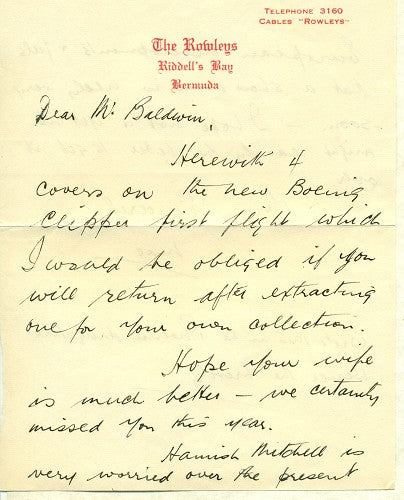 TELEPHONE 3160
CABLES "ROWLEYS"
The Rowleys
Riddell's Bay
Bermuda
Dear Mr Baldwin,
Herewith 4
covers on the new Boeing
Clipper first flight which
I would be obliged if you
will return after extracting
one for your own collection.
Hope your wife
is much better – we certainly
missed you this year.
Hamish Mitchell is
very worried over the present